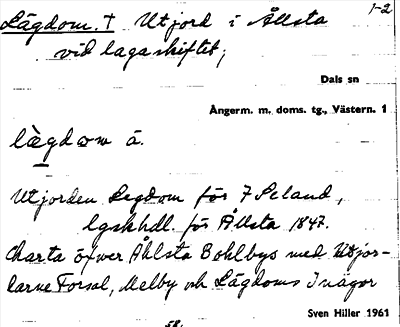 1-2
Lägdom. † Utjord i Ållsta
vid laga skiftet;
Dals sn
Ångerm. m. doms. tg., Västern. 1
lägdom å.
Utjorden Legdom för 7 Seland,
lgskhdl. för Ållsta 1847.
Charta öfver Åhlsta Bohlbys med Utjor-
larne Forsal, Melby och Lägdoms Inägor
Sven Hiller 1961